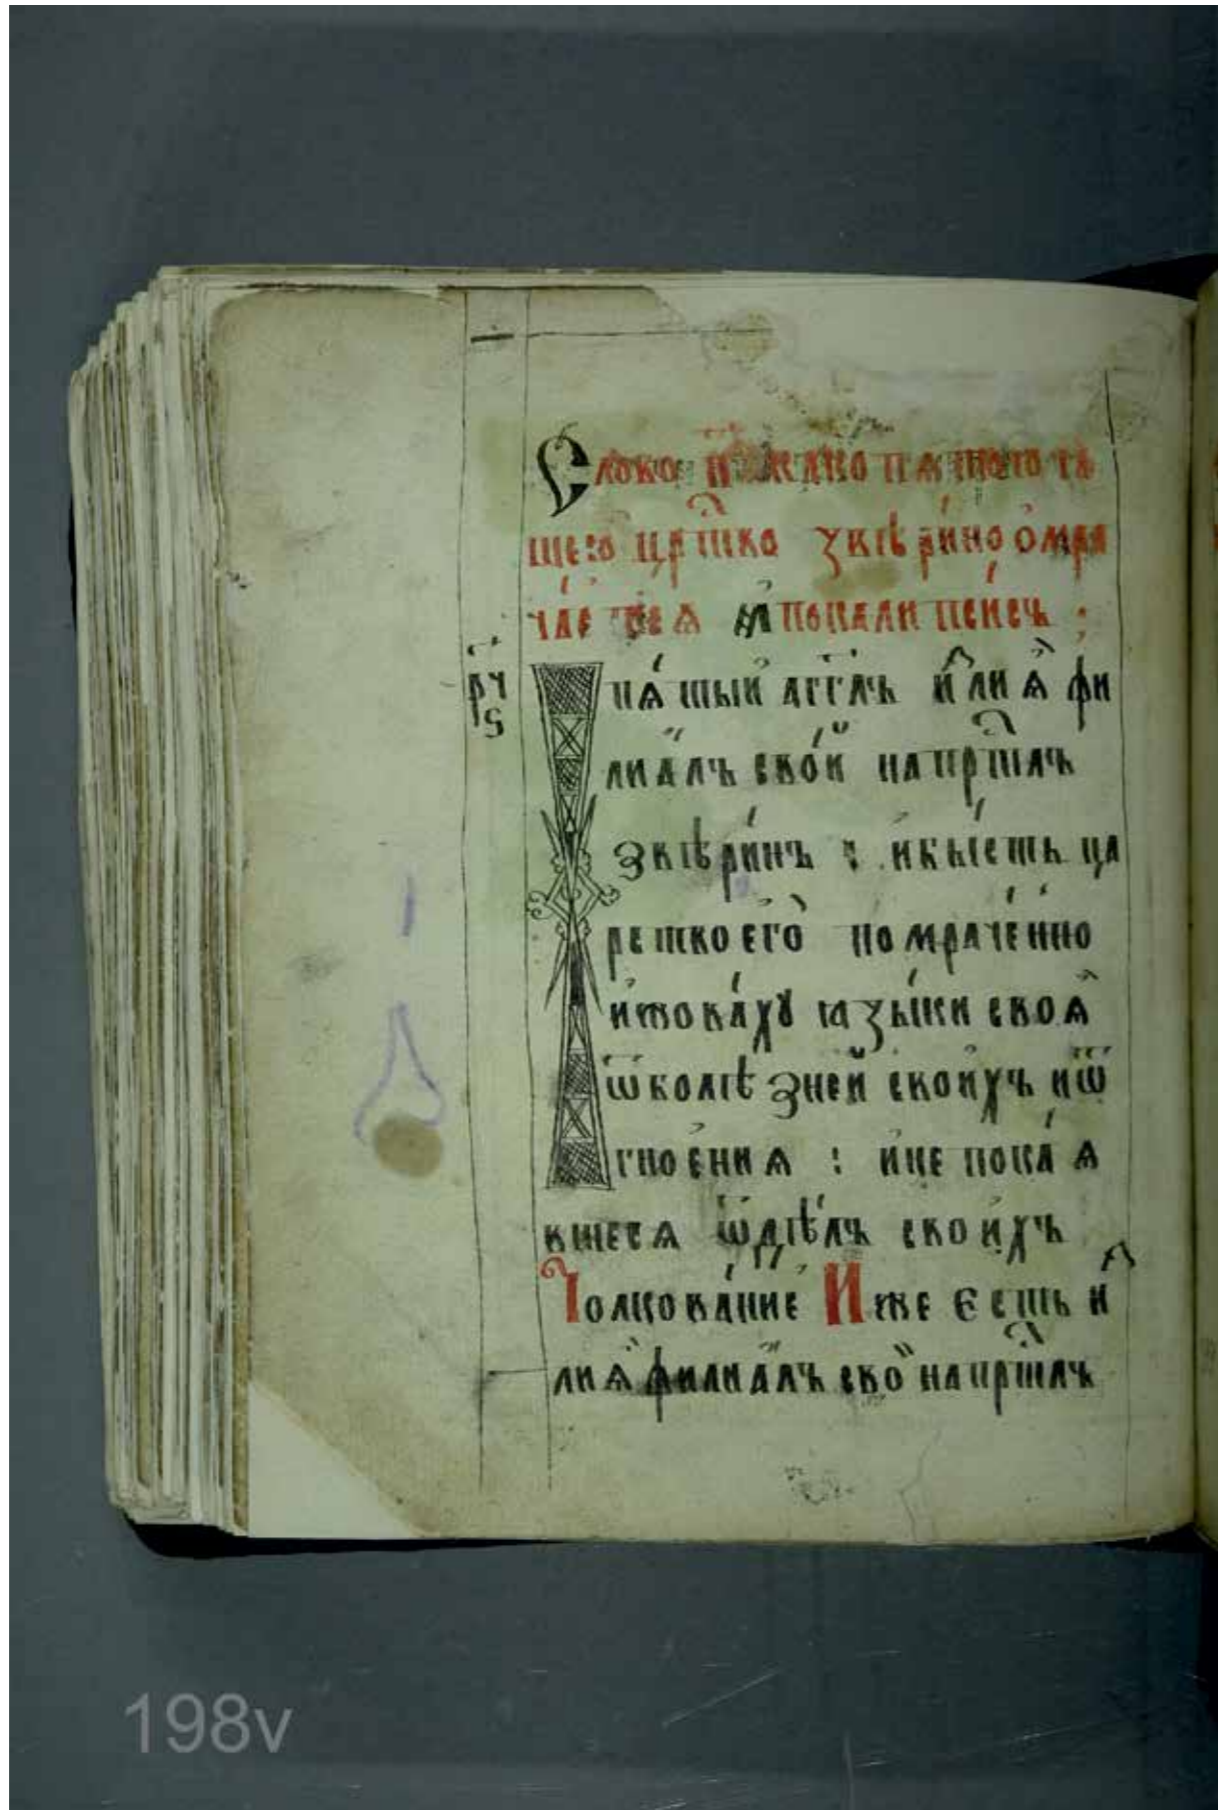 Слово
щею црⷭ҇тво ѕвѣрино омра
чае
рч҃ѕ
І пѧтыи аг҃глъ излиѧ фи
лиалъ свои на прⷭ҇тлъ
ѕвѣринъ : и бысть ца
рство его помраченно
и жваху ꙗзыки своѧ
ѿ болѣзнеи своихъ и ѿ
гноениѧ : и не покаѧ
вшесѧ ѿ дѣлъ своихъ
Толкование Иже есть и
лиѧ филиалъ свои на прⷭ҇тлъ
198v